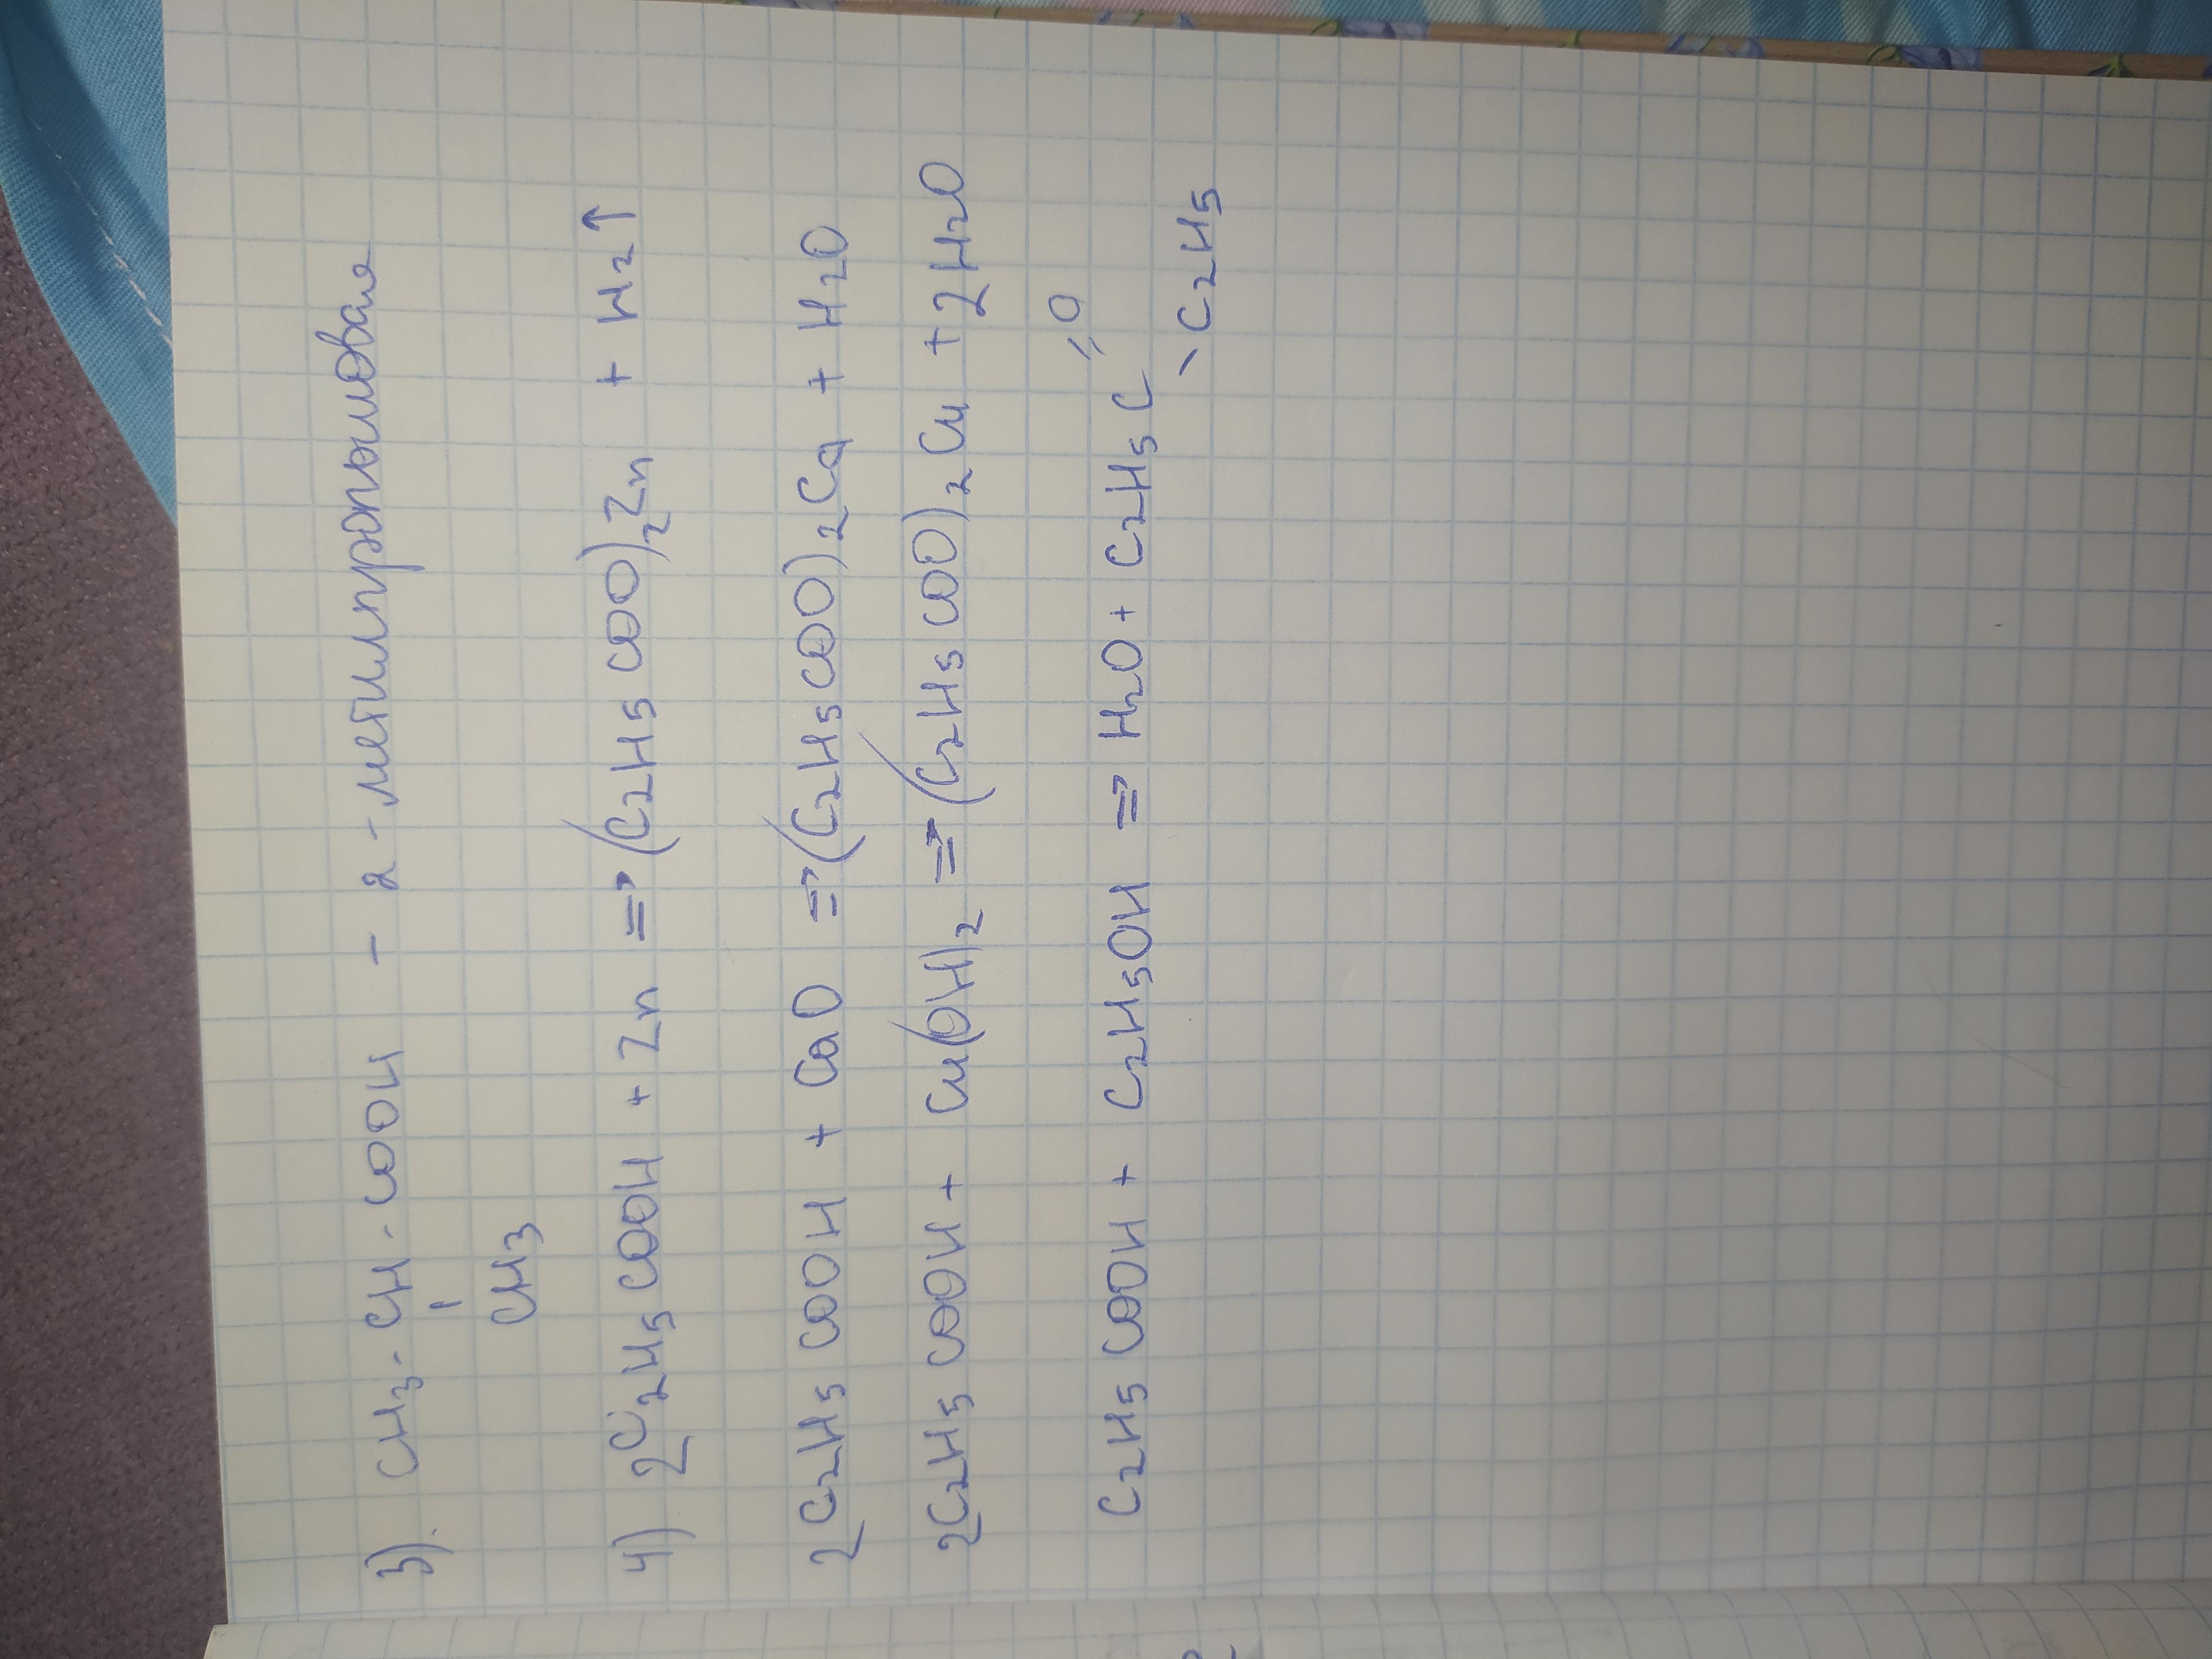 3). CH3-CH-COOH - 2-метилпропановая
CH3
4) 2C2H5COOH + Zn => (C2H5COO)2Zn + H2↑
2C2H5COOH + CaO => (C2H5COO)2Ca + H2O
2C2H5COOH + Cu(OH)2 => (C2H5COO)2Cu + 2H2O
C2H5COOH + C2H5OH => H2O + C2H5C
=O
\C2H5